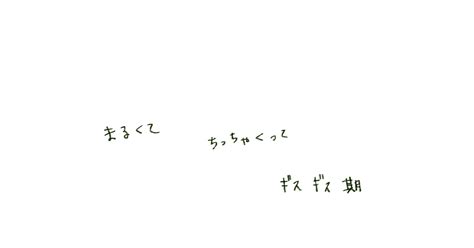 まるくて
ちっちゃくって
ギスギス期